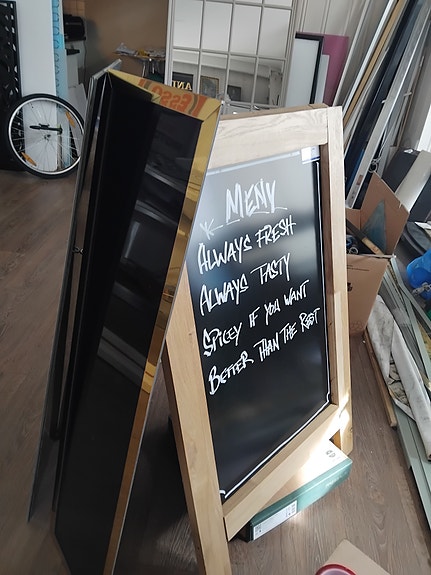 MENY
ALWAYS FRESH
ALWAYS TASTY
SPICEY IF YOU WANT
BETTER THAN THE REST